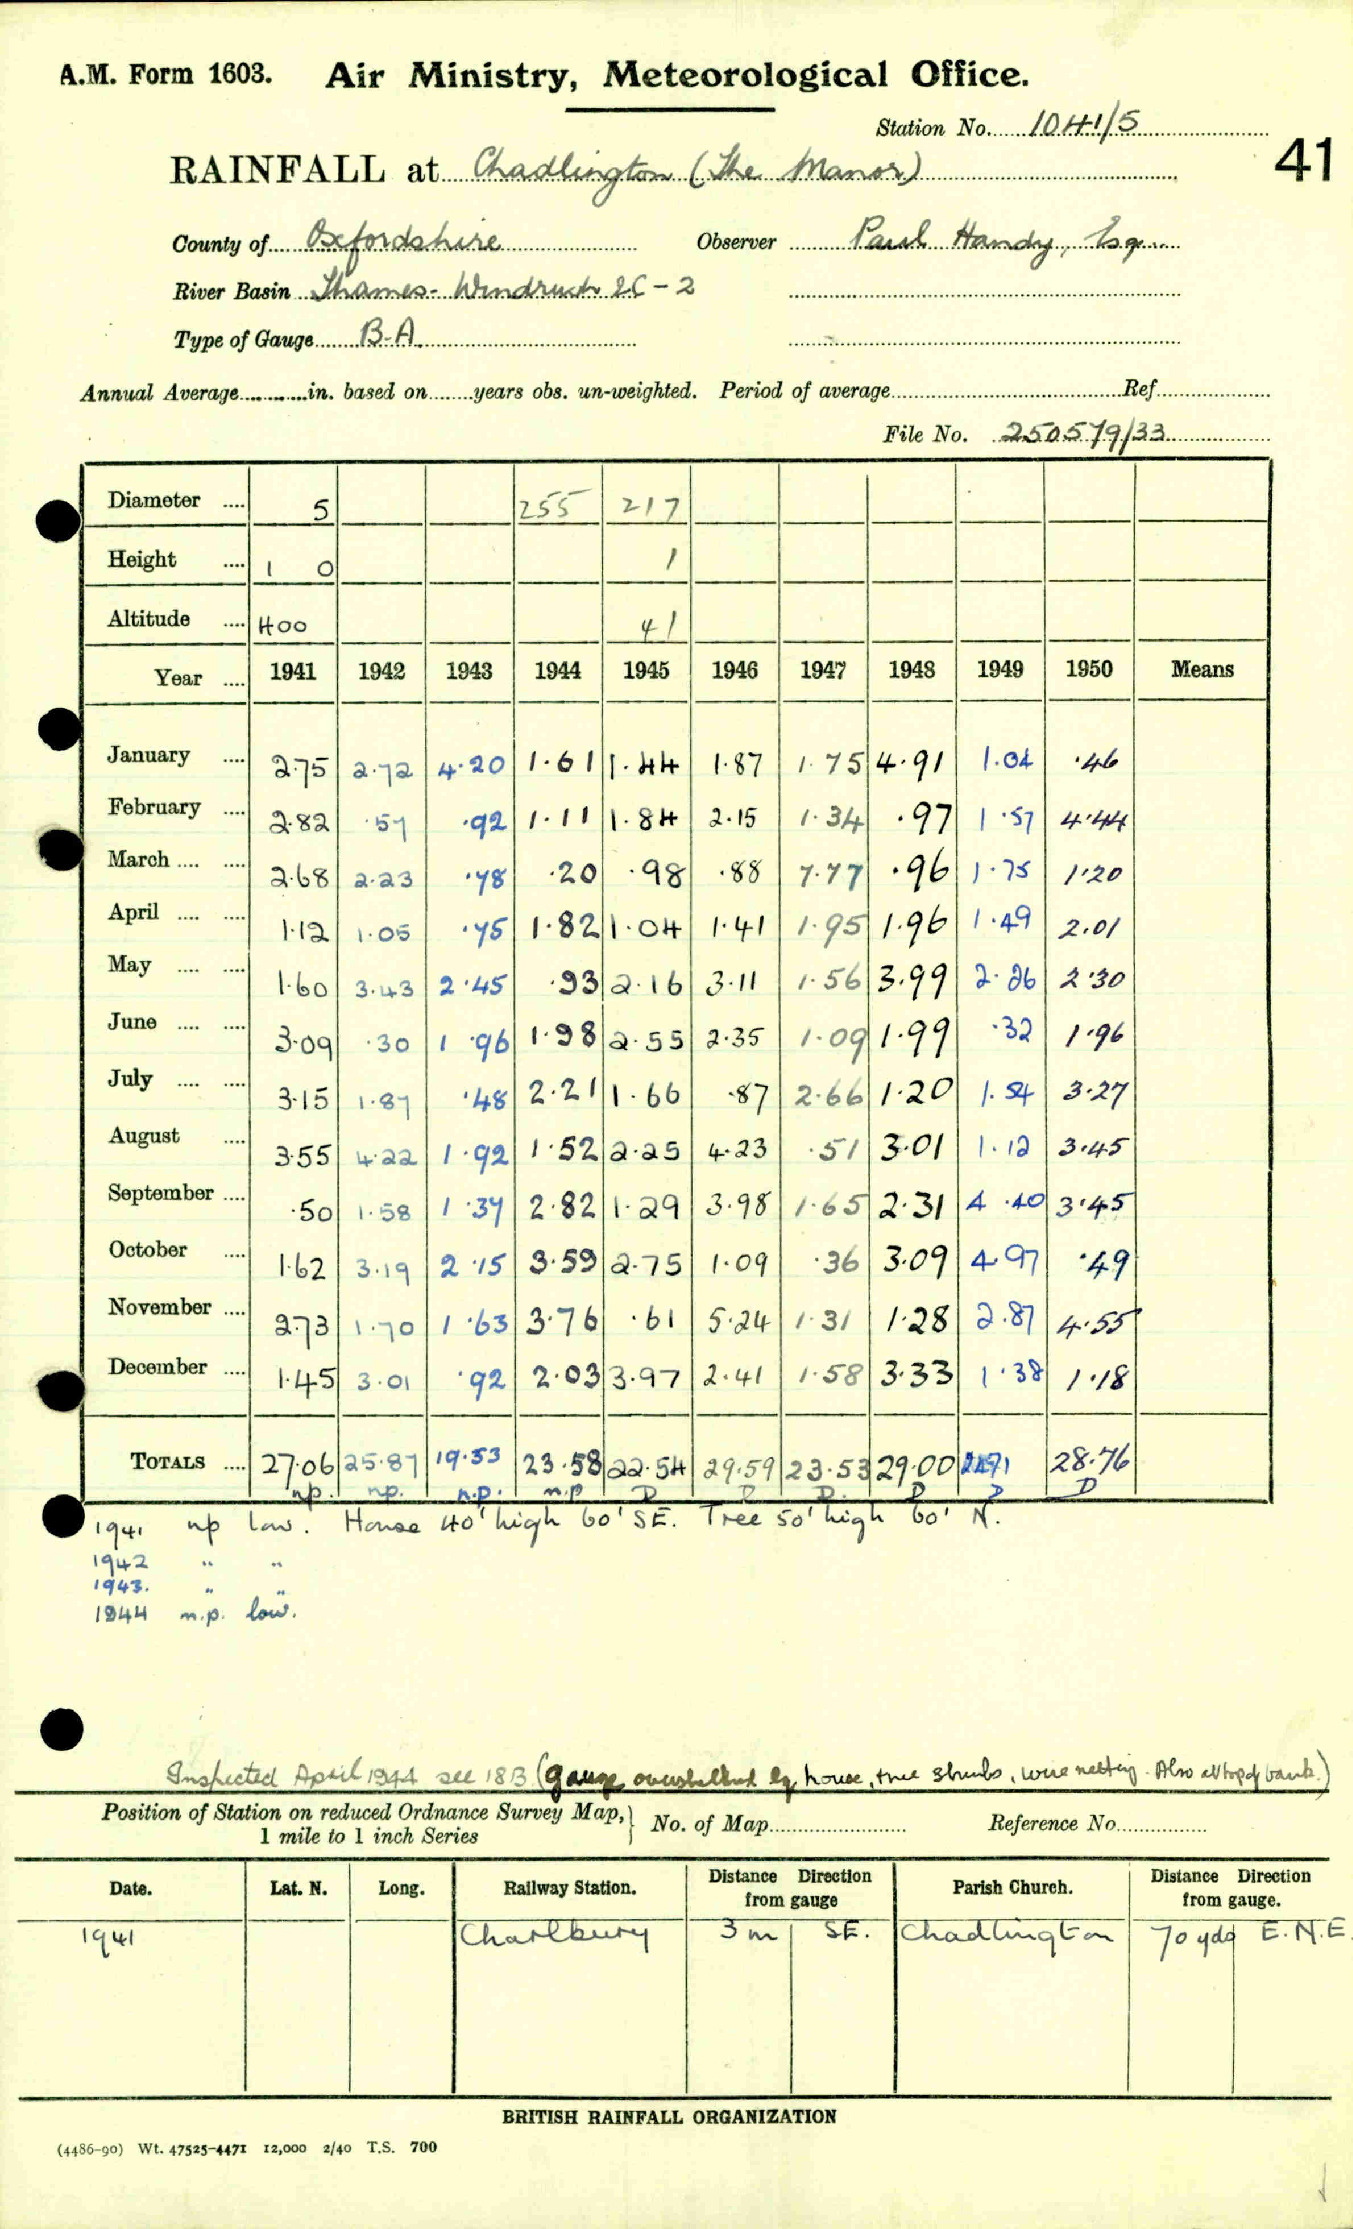 A.M. Form 1603. Air Ministry, Meteorological Office.
Station No. 1041/5
41
RAINFALL at Chadlington (The Manor)
County of Oxfordshire Observer Paul Handy, Esq.
River Basin Thames - Windrush 2C-2
Type of Gauge B-A
Annual Average in. based on years obs. un-weighted. Period of average Ref
File No. 250579/33
Diameter 5 255 217
Height 1 0 1
Altitude 400 41
Year 1941 1942 1943 1944 1945 1946 1947 1948 1949 1950 Means
January 2.75 2.72 4.20 1.61 1.44 1.87 1.75 4.91 1.04 .46
February 2.82 .57 .92 1.11 1.84 2.15 1.34 .97 1.57 4.44
March 2.68 2.23 .78 .20 .98 .88 7.77 .96 1.75 1.20
April 1.12 1.05 .75 1.82 1.04 1.41 1.95 1.96 1.49 2.01
May 1.60 3.43 2.45 .93 2.16 3.11 1.56 3.99 2.26 2.30
June 3.09 .30 1.96 1.98 2.55 2.35 1.09 1.99 .32 1.96
July 3.15 1.87 .48 2.21 1.66 .87 2.66 1.20 1.54 3.27
August 3.55 4.22 1.92 1.52 2.25 4.23 .51 3.01 1.12 3.45
September .50 1.58 1.37 2.82 1.29 3.98 1.65 2.31 4.40 3.45
October 1.62 3.19 2.15 3.59 2.75 1.09 .36 3.09 4.97 .49
November 2.73 1.70 1.63 3.76 .61 5.24 1.31 1.28 2.87 4.55
December 1.45 3.01 .92 2.03 3.97 2.41 1.58 3.33 1.38 1.18
TOTALS 27.06 25.87 19.53 23.58 22.54 29.59 23.53 29.00 24.71 28.76
np. np. n.p. n.p D D D. D D D
1941 np low. House 40' high 60' SE. Tree 50' high 60' N.
1942 " "
1943. " "
1944 n.p. low.
Inspected April 1944 see 18B (gauge oversheltered by house, tree shrubs, wire netting. Also at top of bank.)
Position of Station on reduced Ordnance Survey Map, No. of Map Reference No
1 mile to 1 inch Series
Date. Lat. N. Long. Railway Station. Distance Direction from gauge Parish Church. Distance Direction from gauge.
1941 Charlbury 3 m SE. Chadlington 70 yds E.N.E.
BRITISH RAINFALL ORGANIZATION
(4486-90) Wt. 47525-4471 12,000 2/40 T.S. 700